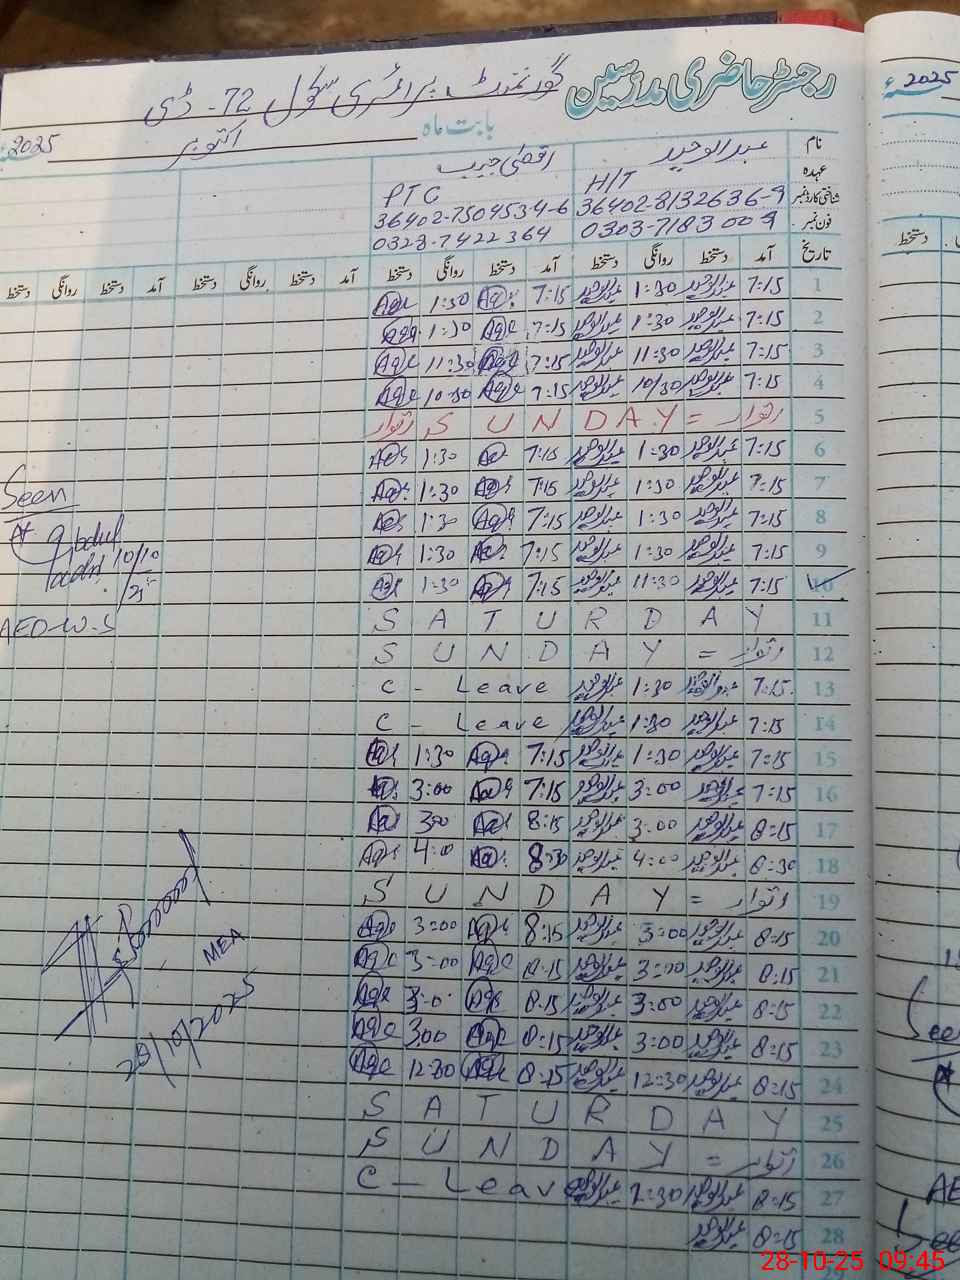 رجسٹر حاضری مدرسین گورنمنٹ پرائمری سکول 72-ڈی
بابت ماہ اکتوبر 2025ء
2025ء
نام عبدالوحید اقصیٰ حبیب
عہدہ H/T PTC
شناختی کارڈ نمبر 36402-8132636-9 36402-7504534-6
فون نمبر 0303-7183009 0328-7422364
تاریخ آمد دستخط روانگی دستخط آمد دستخط روانگی دستخط آمد دستخط روانگی دستخط آمد دستخط روانگی دستخط
دستخط
1 7:15 عبدالوحید 1:30 عبدالوحید 7:15 Aqs 1:30 Aqs
2 7:15 عبدالوحید 1:30 عبدالوحید 7:15 Aqs 1:30 Aqs
3 7:15 عبدالوحید 11:30 عبدالوحید 7:15 Aqs 11:30 Aqs
4 7:15 عبدالوحید 10/30 عبدالوحید 7:15 Aqs 10:30 Aqs
5 اتوار = SUNDAY اتوار
6 7:15 عبدالوحید 1:30 عبدالوحید 7:15 Aqs 1:30 Aqs
7 7:15 عبدالوحید 1:30 عبدالوحید 7:15 Aqs 1:30 Aqs
8 7:15 عبدالوحید 1:30 عبدالوحید 7:15 Aqs 1:30 Aqs
9 7:15 عبدالوحید 1:30 عبدالوحید 7:15 Aqs 1:30 Aqs
10 7:15 عبدالوحید 11:30 عبدالوحید 7:15 Aqs 1:30 Aqs
11 SATURDAY
12 اتوار = SUNDAY
13 7:15 عبدالوحید 1:30 عبدالوحید C - Leave
14 7:15 عبدالوحید 1:30 عبدالوحید C - Leave
15 7:15 عبدالوحید 1:30 عبدالوحید 7:15 Aqs 1:30 Aqs
16 7:15 عبدالوحید 3:00 عبدالوحید 7:15 Aqs 3:00 Aqs
17 8:15 عبدالوحید 3:00 عبدالوحید 8:15 Aqs 300 Aqs
18 8:30 عبدالوحید 4:00 عبدالوحید 8:30 Aqs 4:00 Aqs
19 اتوار = SUNDAY
20 8:15 عبدالوحید 3:00 عبدالوحید 8:15 Aqs 3:00 Aqs
21 8:15 عبدالوحید 3:00 عبدالوحید 8:15 Aqs 3:00 Aqs
22 8:15 عبدالوحید 3:00 عبدالوحید 8:15 Aqs 3:0 Aqs
23 8:15 عبدالوحید 3:00 عبدالوحید 8:15 Aqs 300 Aqs
24 8:15 عبدالوحید 12:30 عبدالوحید 8:15 Aqs 12:30 Aqs
25 SATURDAY
26 اتوار = SUNDAY
27 8:15 عبدالوحید 2:30 عبدالوحید C - Leave
28 8:15 عبدالوحید
Seen
10/10
AEO-W-S
MEA
28/10/2025
Seen
28-10-25 09:45